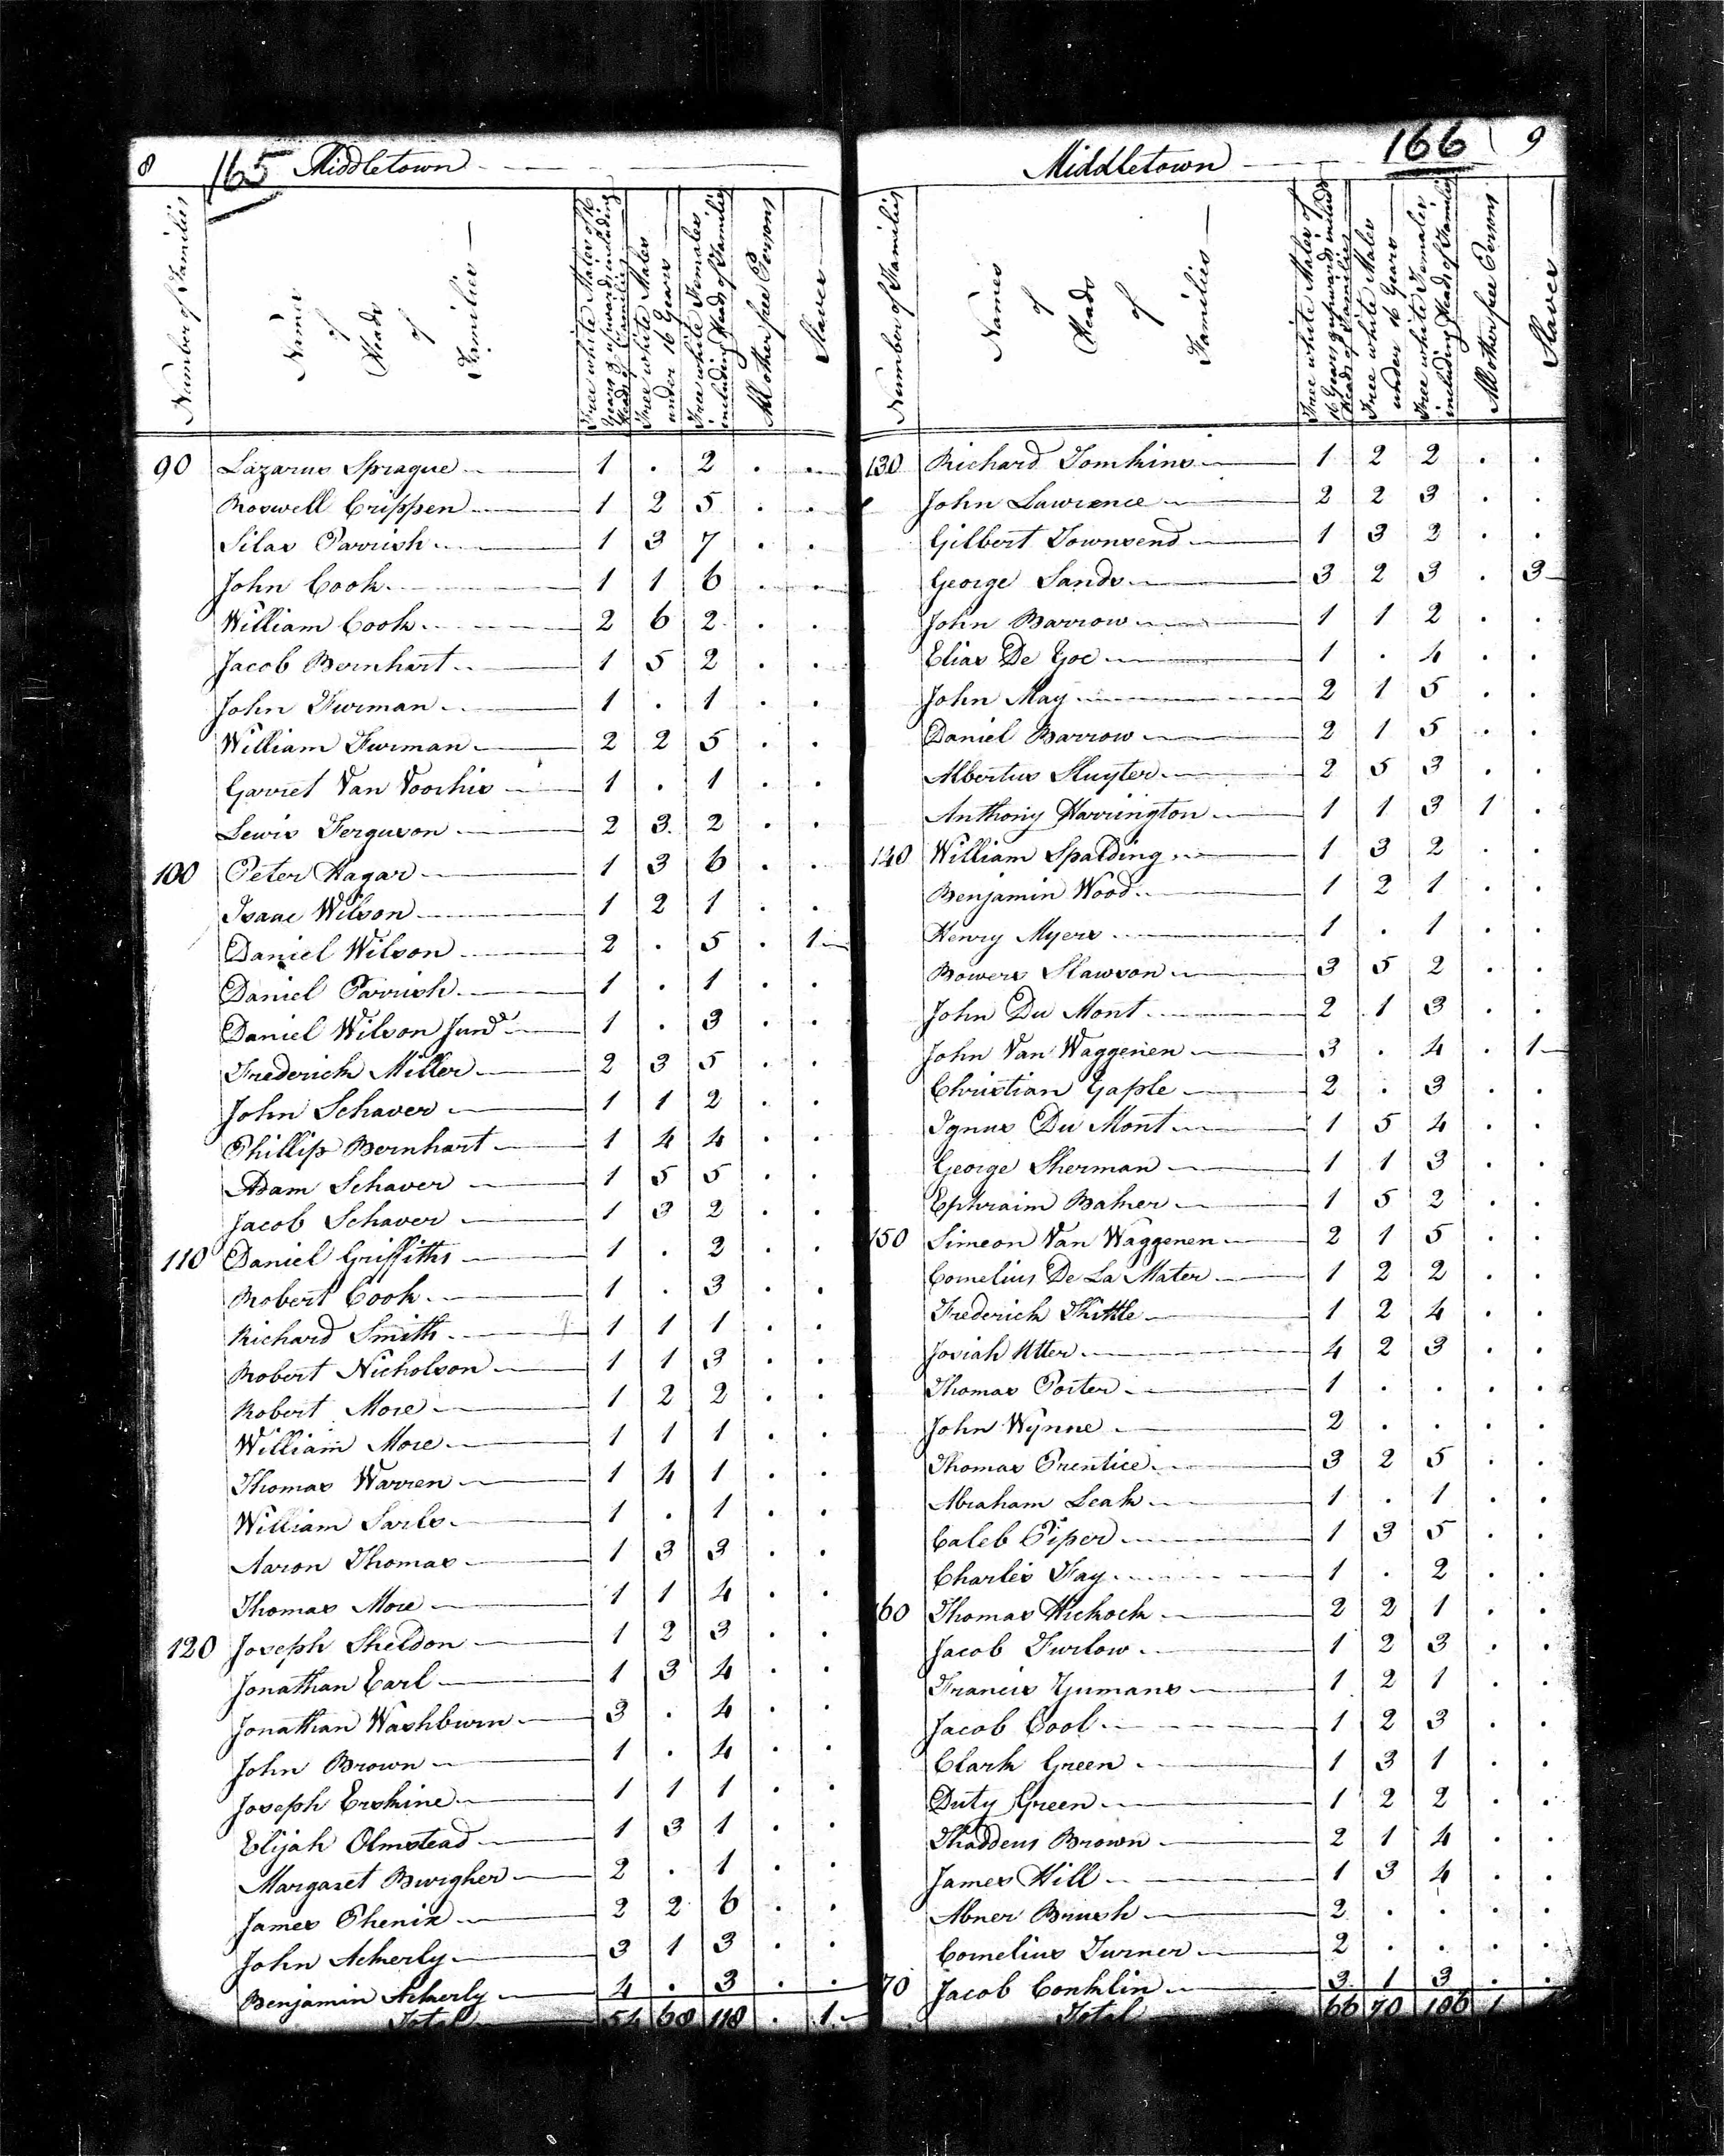 8 165 Middletown
Number of Families
Names of Heads of Families
Free white Males of 16 Years & upwards including Heads of Families
Free white Males under 16 Years
Free white Females including Heads of Families
All other free Persons
Slaves
90 Lazarus Sprague 1 . 2 . .
Roswell Crippen 1 2 5 . .
Silas Parrish 1 3 7 . .
John Cook 1 1 6 . .
William Cook 2 6 2 . .
Jacob Bernhart 1 5 2 . .
John Furman 1 . 1 . .
William Furman 2 2 5 . .
Garret Van Voorhis 1 . 1 . .
Lewis Ferguson 2 3 2 . .
100 Peter Hagar 1 3 6 . .
Isaac Wilson 1 2 1 . .
Daniel Wilson 2 . 5 . 1
Daniel Parrish 1 . 1 . .
Daniel Wilson Junr 1 . 3 . .
Frederick Miller 2 3 5 . .
John Schaver 1 1 2 . .
Phillip Bernhart 1 4 4 . .
Adam Schaver 1 5 5 . .
Jacob Schaver 1 3 2 . .
110 Daniel Griffiths 1 . 2 . .
Robert Cook 1 . 3 . .
Richard Smith 1 1 1 . .
Robert Nicholson 1 1 3 . .
Robert More 1 2 2 . .
William More 1 1 1 . .
Thomas Warren 1 4 1 . .
William Sarls 1 . 1 . .
Aaron Thomas 1 3 3 . .
Thomas More 1 1 4 . .
120 Joseph Sheldon 1 2 3 . .
Jonathan Earl 1 3 4 . .
Jonathan Washburn 3 . 4 . .
John Brown 1 . 4 . .
Joseph Erskine 1 1 1 . .
Elijah Olmstead 1 3 1 . .
Margaret Burgher 2 . 1 . .
James Phenix 2 2 6 . .
John Ackerly 3 1 3 . .
Benjamin Ackerly 4 . 3 . .
Total 54 68 118 . 1
Middletown 166 9
Number of Families
Names of Heads of Families
Free white Males of 16 Years & upwards including Heads of Families
Free white Males under 16 Years
Free white Females including Heads of Families
All other free Persons
Slaves
130 Richard Tomkins 1 2 2 . .
John Lawrence 2 2 3 . .
Gilbert Townsend 1 3 2 . .
George Sands 3 2 3 . 3
John Barrow 1 1 2 . .
Elias De Goe 1 . 4 . .
John May 2 1 5 . .
Daniel Barrow 2 1 5 . .
Albertus Sluyter 2 5 3 . .
Anthony Harrington 1 1 3 1 .
140 William Spalding 1 3 2 . .
Benjamin Wood 1 2 1 . .
Henry Myers 1 . 1 . .
Bowers Slawson 3 5 2 . .
John Du Mont 2 1 3 . .
John Van Waggenen 3 . 4 . 1
Christian Gaple 2 . 3 . .
Ignus Du Mont 1 5 4 . .
George Sherman 1 1 3 . .
Ephraim Baker 1 5 2 . .
150 Simeon Van Waggenen 2 1 5 . .
Cornelius De La Mater 1 2 2 . .
Frederick 1 2 4 . .
Josiah Utter 4 2 3 . .
Thomas Porter 1 . . . .
John Wynne 2 . . . .
Thomas Prentice 3 2 5 . .
Abraham Leak 1 . 1 . .
Caleb Piper 1 3 5 . .
Charles Fay 1 . 2 . .
60 Thomas Hickock 2 2 1 . .
Jacob Furlow 1 2 3 . .
Francis Yumans 1 2 1 . .
Jacob Cool 1 2 3 . .
Clark Green 1 3 1 . .
Duty Green 1 2 2 . .
Thaddeus Brown 2 1 4 . .
James Hill 1 3 4 . .
Abner Brush 2 . . . .
Cornelius Turner 2 . . . .
70 Jacob Conklin 3 1 3 . .
Total 66 70 106 1